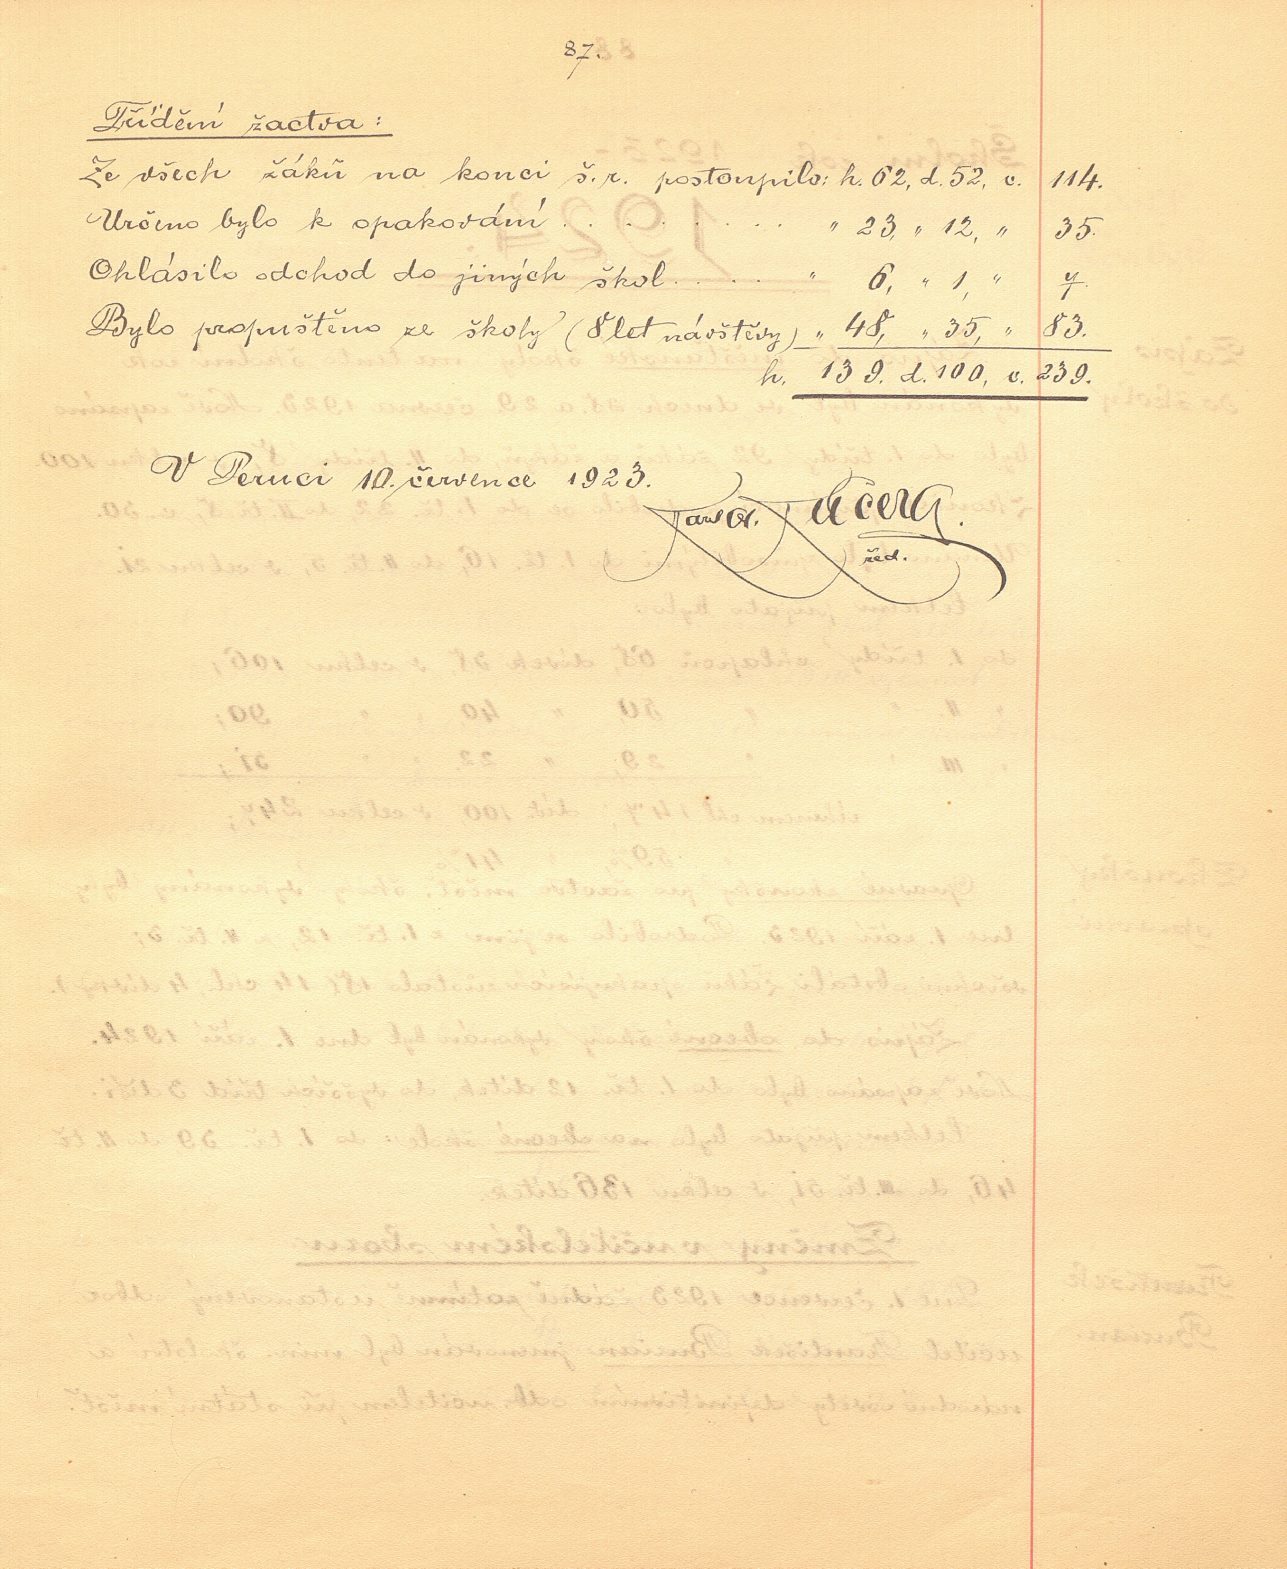 87.
Třídění žactva:
Ze všech žáků na konci š. r. postoupilo: h. 62, d. 52, c. 114.
Určeno bylo k opakování . . . . . . . . . . " 23, " 12, " 35.
Ohlásilo odchod do jiných škol . . . . . " 6, " 1, " 7.
Bylo propuštěno ze školy (8 let návštěvy) " 48, " 35, " 83.
h. 139. d. 100, c. 239.
V Peruci 10. července 1923.
Kučera.
řed.